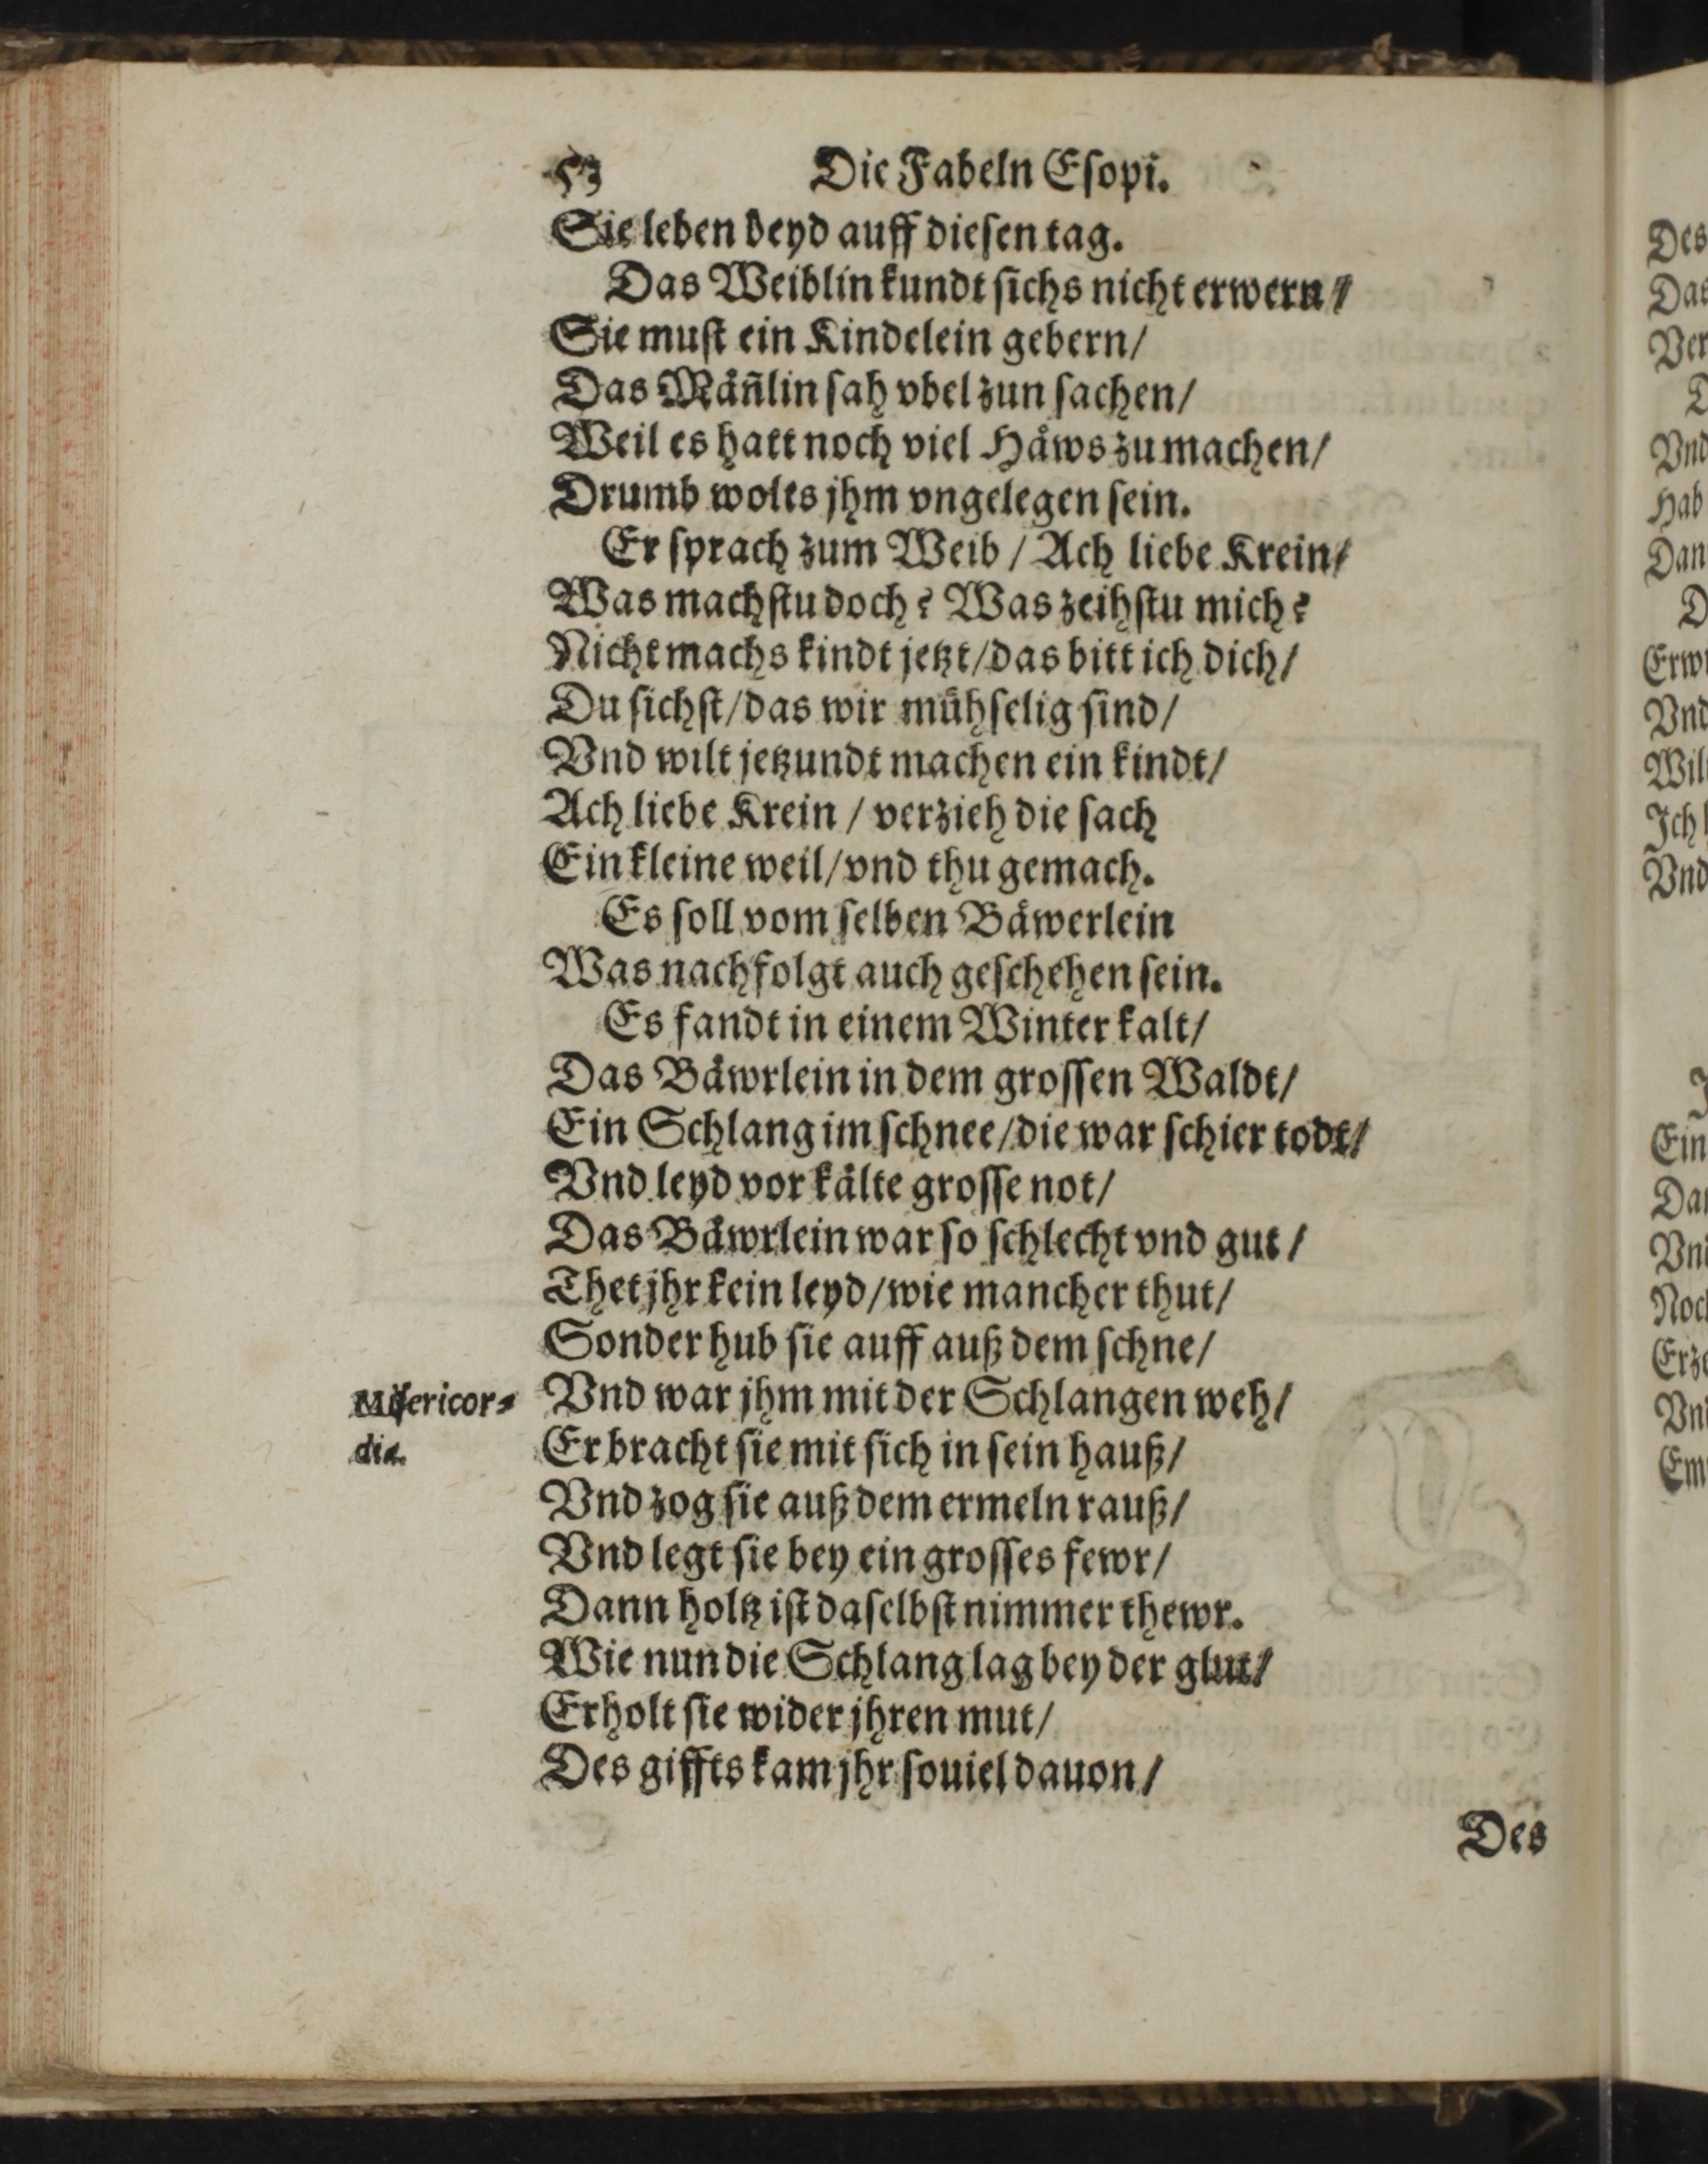 53 Die Fabeln Eſopi.
Sie leben beyd auff dieſen tag.
Das Weiblin kundt ſichs nicht erwern/
Sie muſt ein Kindelein gebern/
Das Mäñlin ſah vbel zun ſachen/
Weil es hatt noch viel Häws zu machen/
Drumb wolts jhm vngelegen ſein.
Er ſprach zum Weib / Ach liebe Krein/
Was machſtu doch? Was zeihſtu mich?
Nicht machs kindt jetzt/das bitt ich dich/
Du ſichſt/das wir mühſelig ſind/
Vnd wilt jetzundt machen ein kindt/
Ach liebe Krein / verzieh die ſach
Ein kleine weil/vnd thu gemach.
Es ſoll vom ſelben Bäwerlein
Was nachfolgt auch geſchehen ſein.
Es fandt in einem Winter kalt/
Das Bäwrlein in dem groſſen Waldt/
Ein Schlang im ſchnee/die war ſchier todt/
Vnd leyd vor kälte groſſe not/
Das Bäwrlein war ſo ſchlecht vnd gut /
Thet jhr kein leyd/wie mancher thut/
Sonder hub ſie auff auß dem ſchne/
Miſericor⸗
dia.
Vnd war jhm mit der Schlangen weh/
Er bracht ſie mit ſich in ſein hauß/
Vnd zog ſie auß dem ermeln rauß/
Vnd legt ſie bey ein groſſes fewr/
Dann holtz iſt daſelbſt nimmer thewr.
Wie nun die Schlang lag bey der glut/
Erholt ſie wider jhren mut/
Des giffts kam jhr ſouiel dauon/
Des
Des
Das
Ver
Vnd
Hab
Dan
Vnd
Wil
Ich
Vnd
Ein
Vnd
Noch
Vnd